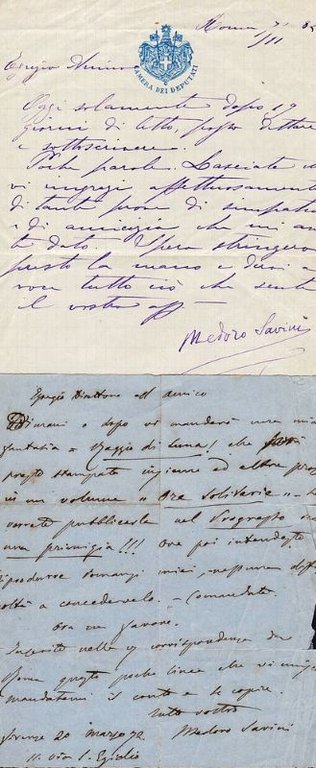 Roma 7/11 85
CAMERA DEI DEPUTATI
Egregio Amico
Oggi solamente dopo 19
giorni di letto, posso dettare
e sottoscrivere.
Poche parole. Lasciate che
vi ringrazi affettuosamente
di tante prove di simpatia
e di amicizia che mi av
te dato. Spero stringervi
presto la mano e dirvi a
voce tutto ciò che sente
il vostro aff
Medoro Savini
Egregio Direttore ed Amico
Domani o dopo vi manderò una mia
fantasia = Raggio di luna! che
presto stampata insieme ad altre prose
in un volume "Ore Solitarie"
vorrete pubblicarla nel
una primizia!!! Ove poi intendeste
riprodurre romanzi miei, nessuna diffi
coltà a concedervelo, - Comandate.
Ora un favore.
Inserite nella corrispondenza da
Roma queste poche linee che vi
mandatemi il conto e le copie.
tutto vostro
Medoro Savini
Firenze 20 marzo 72
11. via S. Egidio